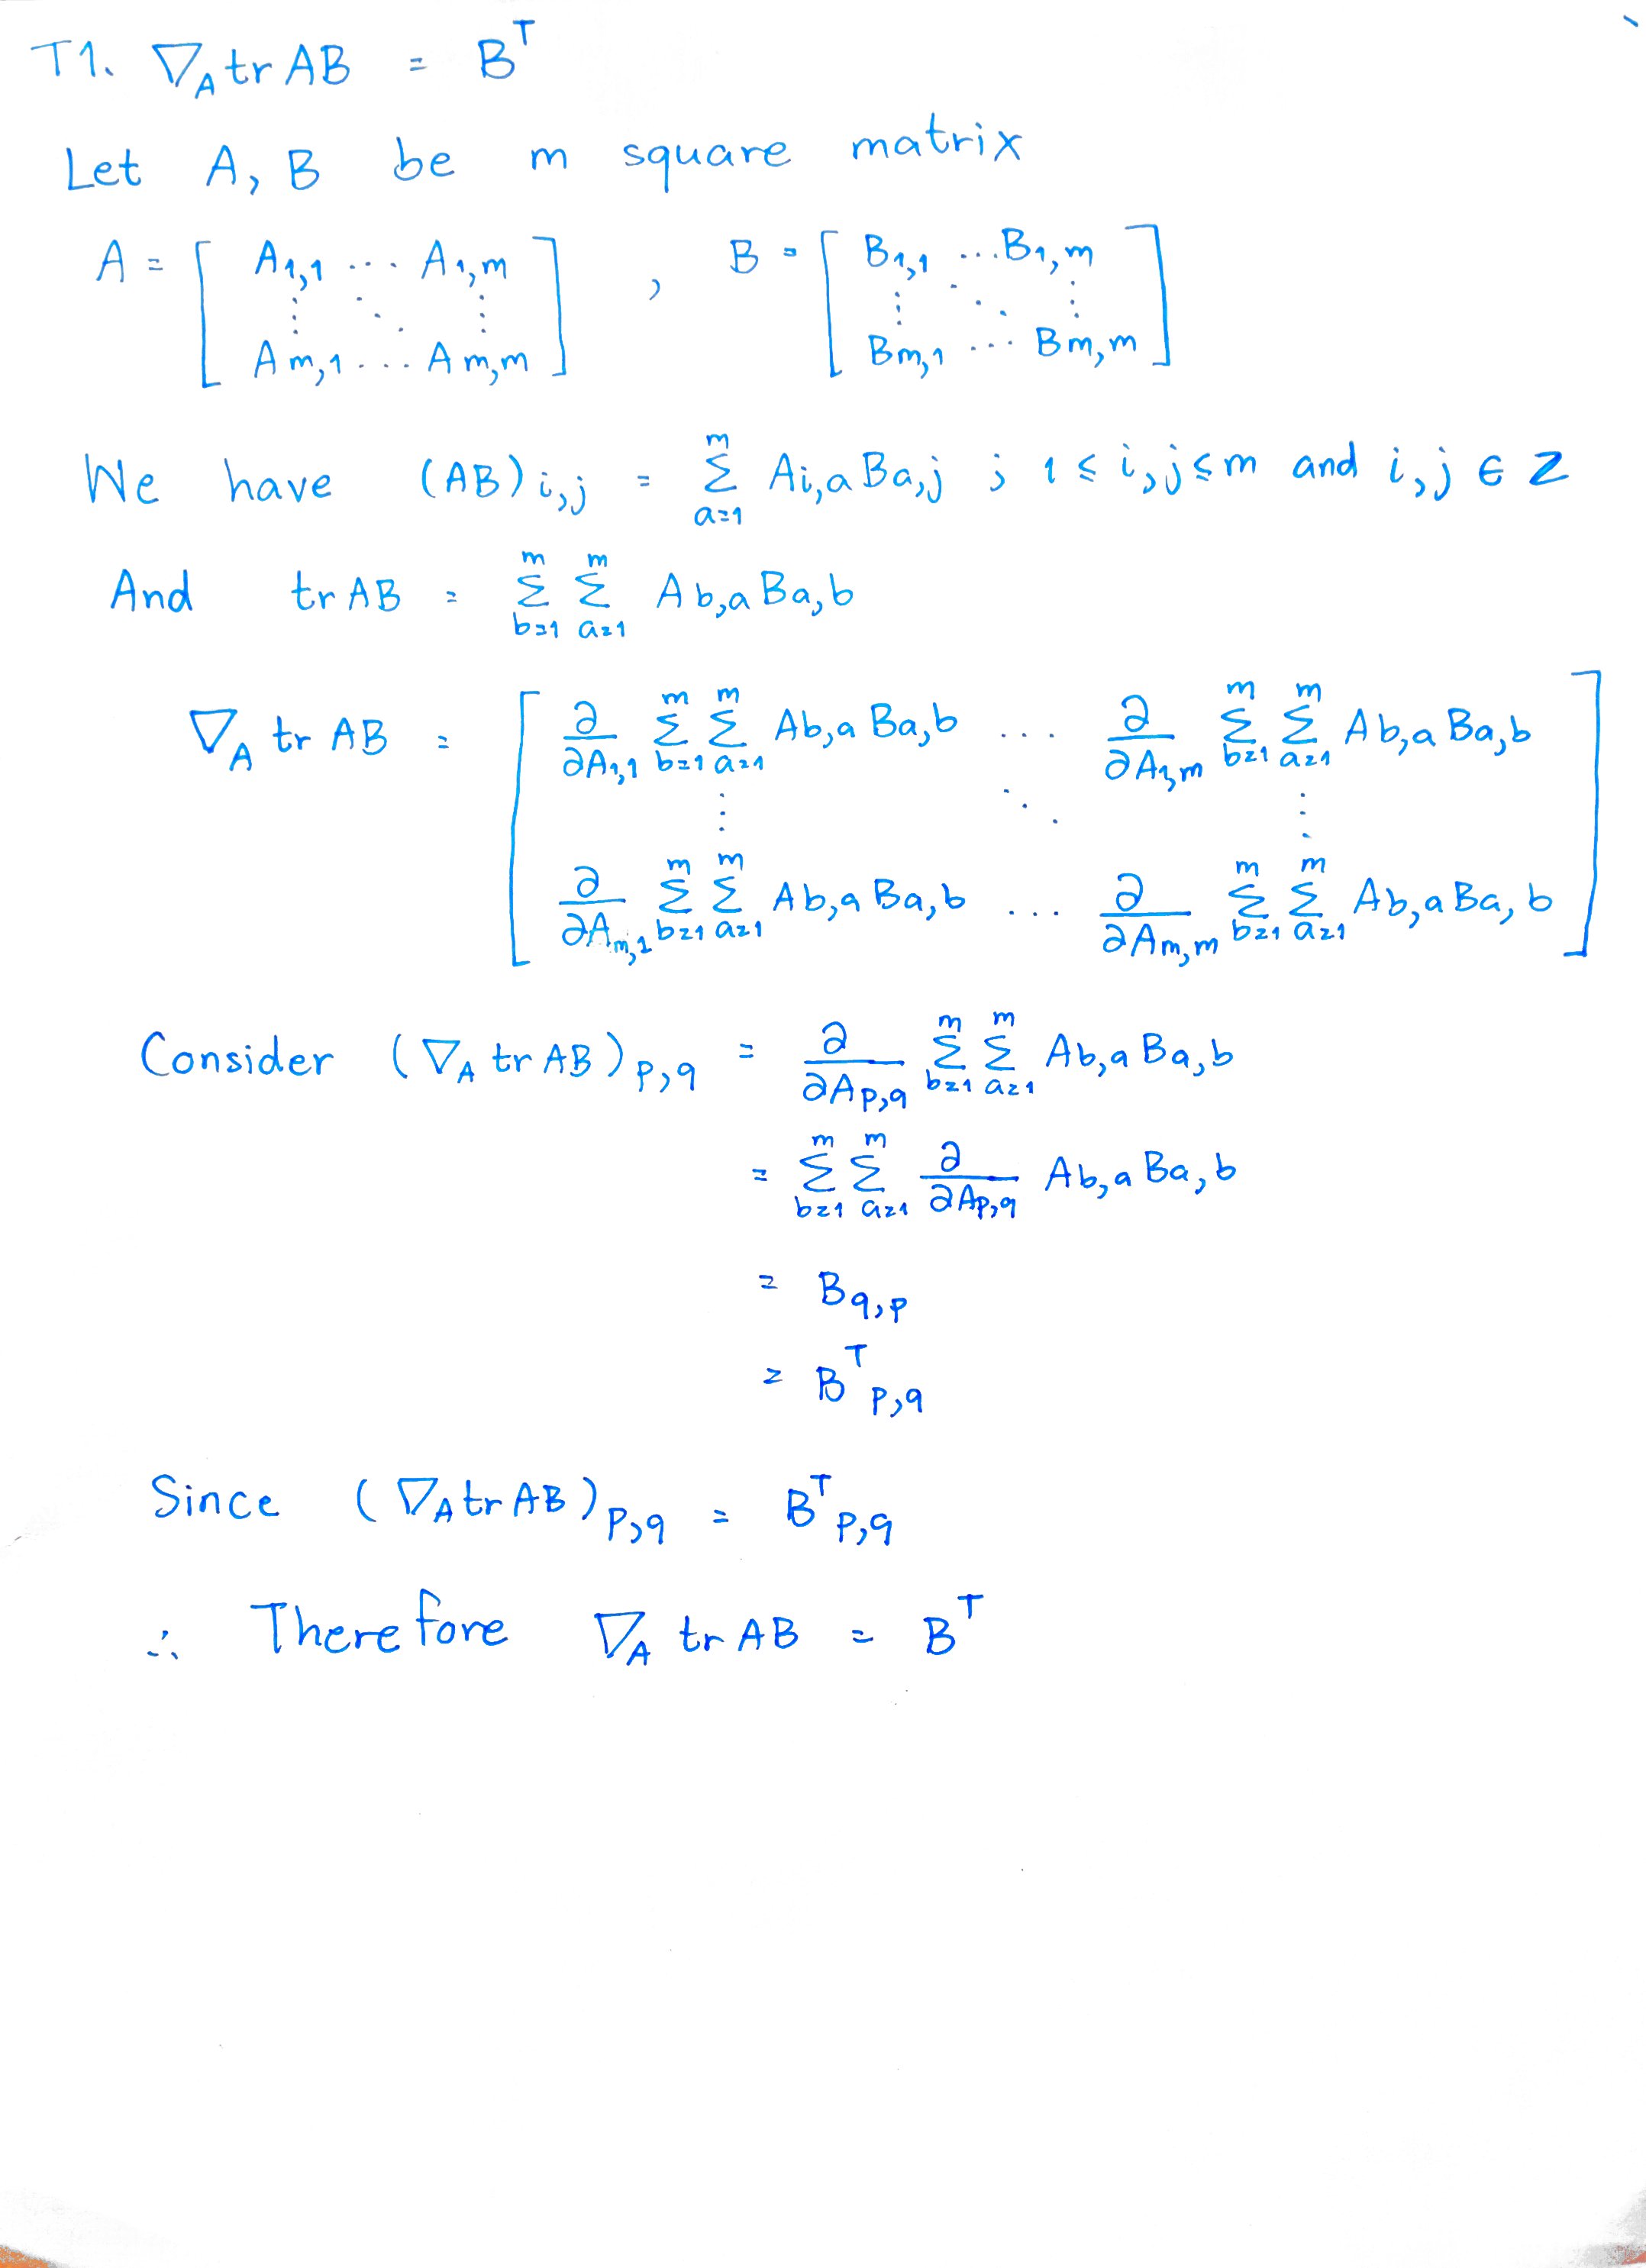 T1. ∇_A tr AB = B^T
Let A, B be m square matrix
A = [ A_{1,1} ... A_{1,m} ⋮ ⋱ ⋮ A_{m,1} ... A_{m,m} ] , B = [ B_{1,1} ... B_{1,m} ⋮ ⋱ ⋮ B_{m,1} ... B_{m,m} ]
We have (AB)_{i,j} = ∑_{a=1}^{m} A_{i,a} B_{a,j} ; 1 ≤ i,j ≤ m and i,j ∈ Z
And tr AB = ∑_{b=1}^{m} ∑_{a=1}^{m} A_{b,a} B_{a,b}
∇_A tr AB = [ ∂/∂A_{1,1} ∑_{b=1}^{m} ∑_{a=1}^{m} A_{b,a} B_{a,b} ... ∂/∂A_{1,m} ∑_{b=1}^{m} ∑_{a=1}^{m} A_{b,a} B_{a,b}
⋮ ⋱ ⋮
∂/∂A_{m,1} ∑_{b=1}^{m} ∑_{a=1}^{m} A_{b,a} B_{a,b} ... ∂/∂A_{m,m} ∑_{b=1}^{m} ∑_{a=1}^{m} A_{b,a} B_{a,b} ]
Consider (∇_A tr AB)_{p,q} = ∂/∂A_{p,q} ∑_{b=1}^{m} ∑_{a=1}^{m} A_{b,a} B_{a,b}
= ∑_{b=1}^{m} ∑_{a=1}^{m} ∂/∂A_{p,q} A_{b,a} B_{a,b}
= B_{q,p}
= B^T_{p,q}
Since (∇_A tr AB)_{p,q} = B^T_{p,q}
∴ Therefore ∇_A tr AB = B^T